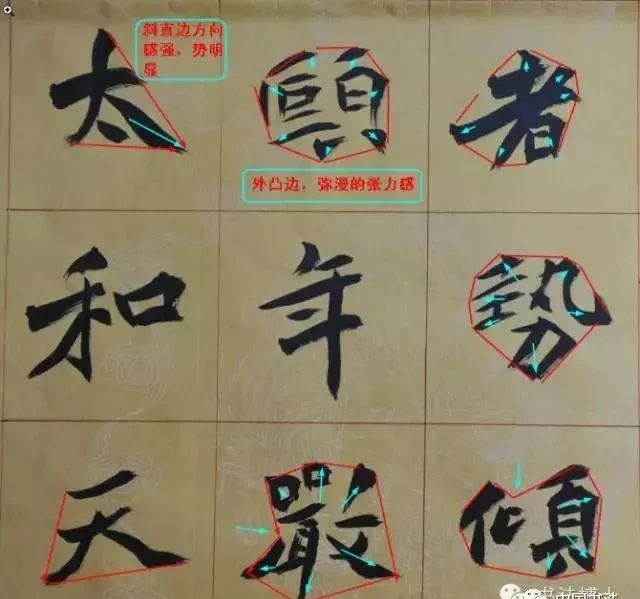 斜直边方向
感强,势明
显
太 頤 者
外凸边,弥漫的张力感
和 年 勢
天 嚴 傾